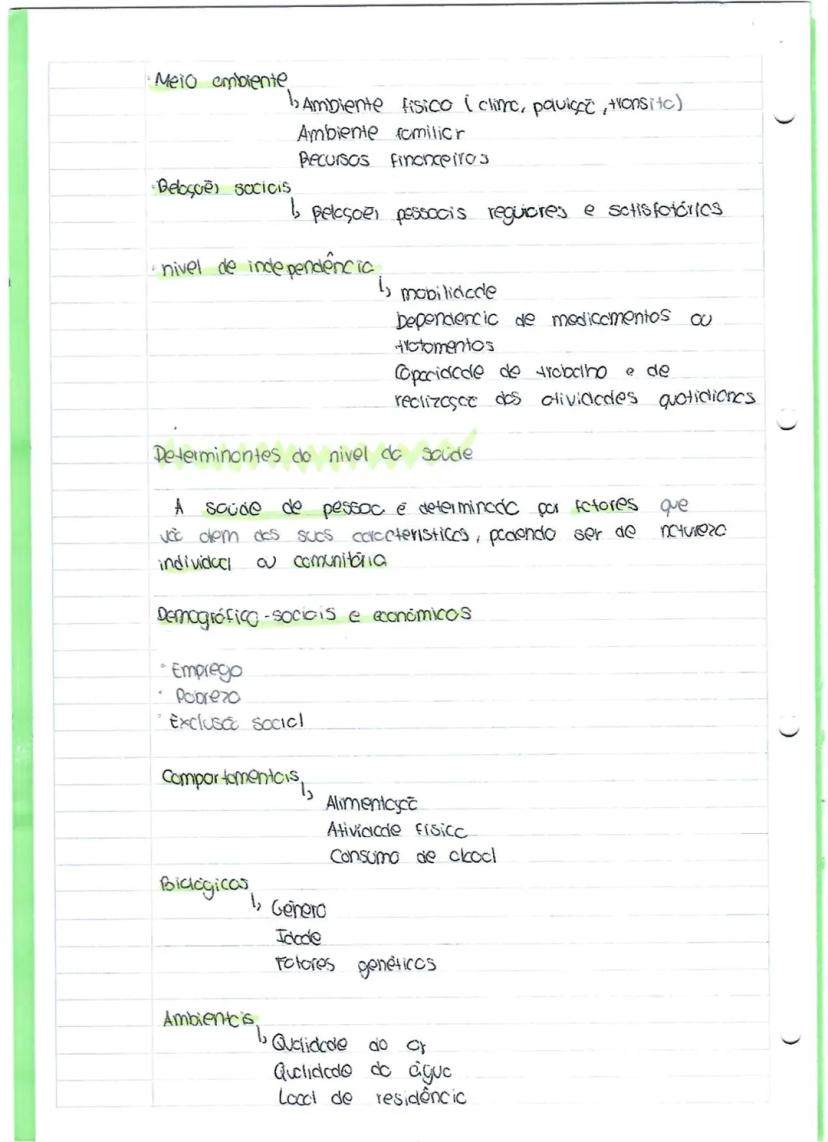 · Meio ambiente
↳ Ambiente físico (clima, poluição, transito)
Ambiente familiar
Recursos financeiros
· Relações sociais
↳ Relações pessoais regulares e satisfatórias
· nivel de independência
↳ mobilidade
Dependencia de medicamentos ou
tratamentos
Capacidade de trabalho e de
realização das atividades quotidianas
Determinantes do nivel da saúde
A saúde de pessoa é determinada por fatores que
vão alem das suas caracteristicas, podendo ser de natureza
individual ou comunitária
Demográfico-sociais e económicos
· Emprego
· Pobreza
· Exclusão social
Comportamentais
↳ Alimentação
Atividade física
Consumo de alcool
Biológicos
↳ Género
Idade
Fatores genéticos
Ambientais
↳ Qualidade do ar
Qualidade da água
Local de residência